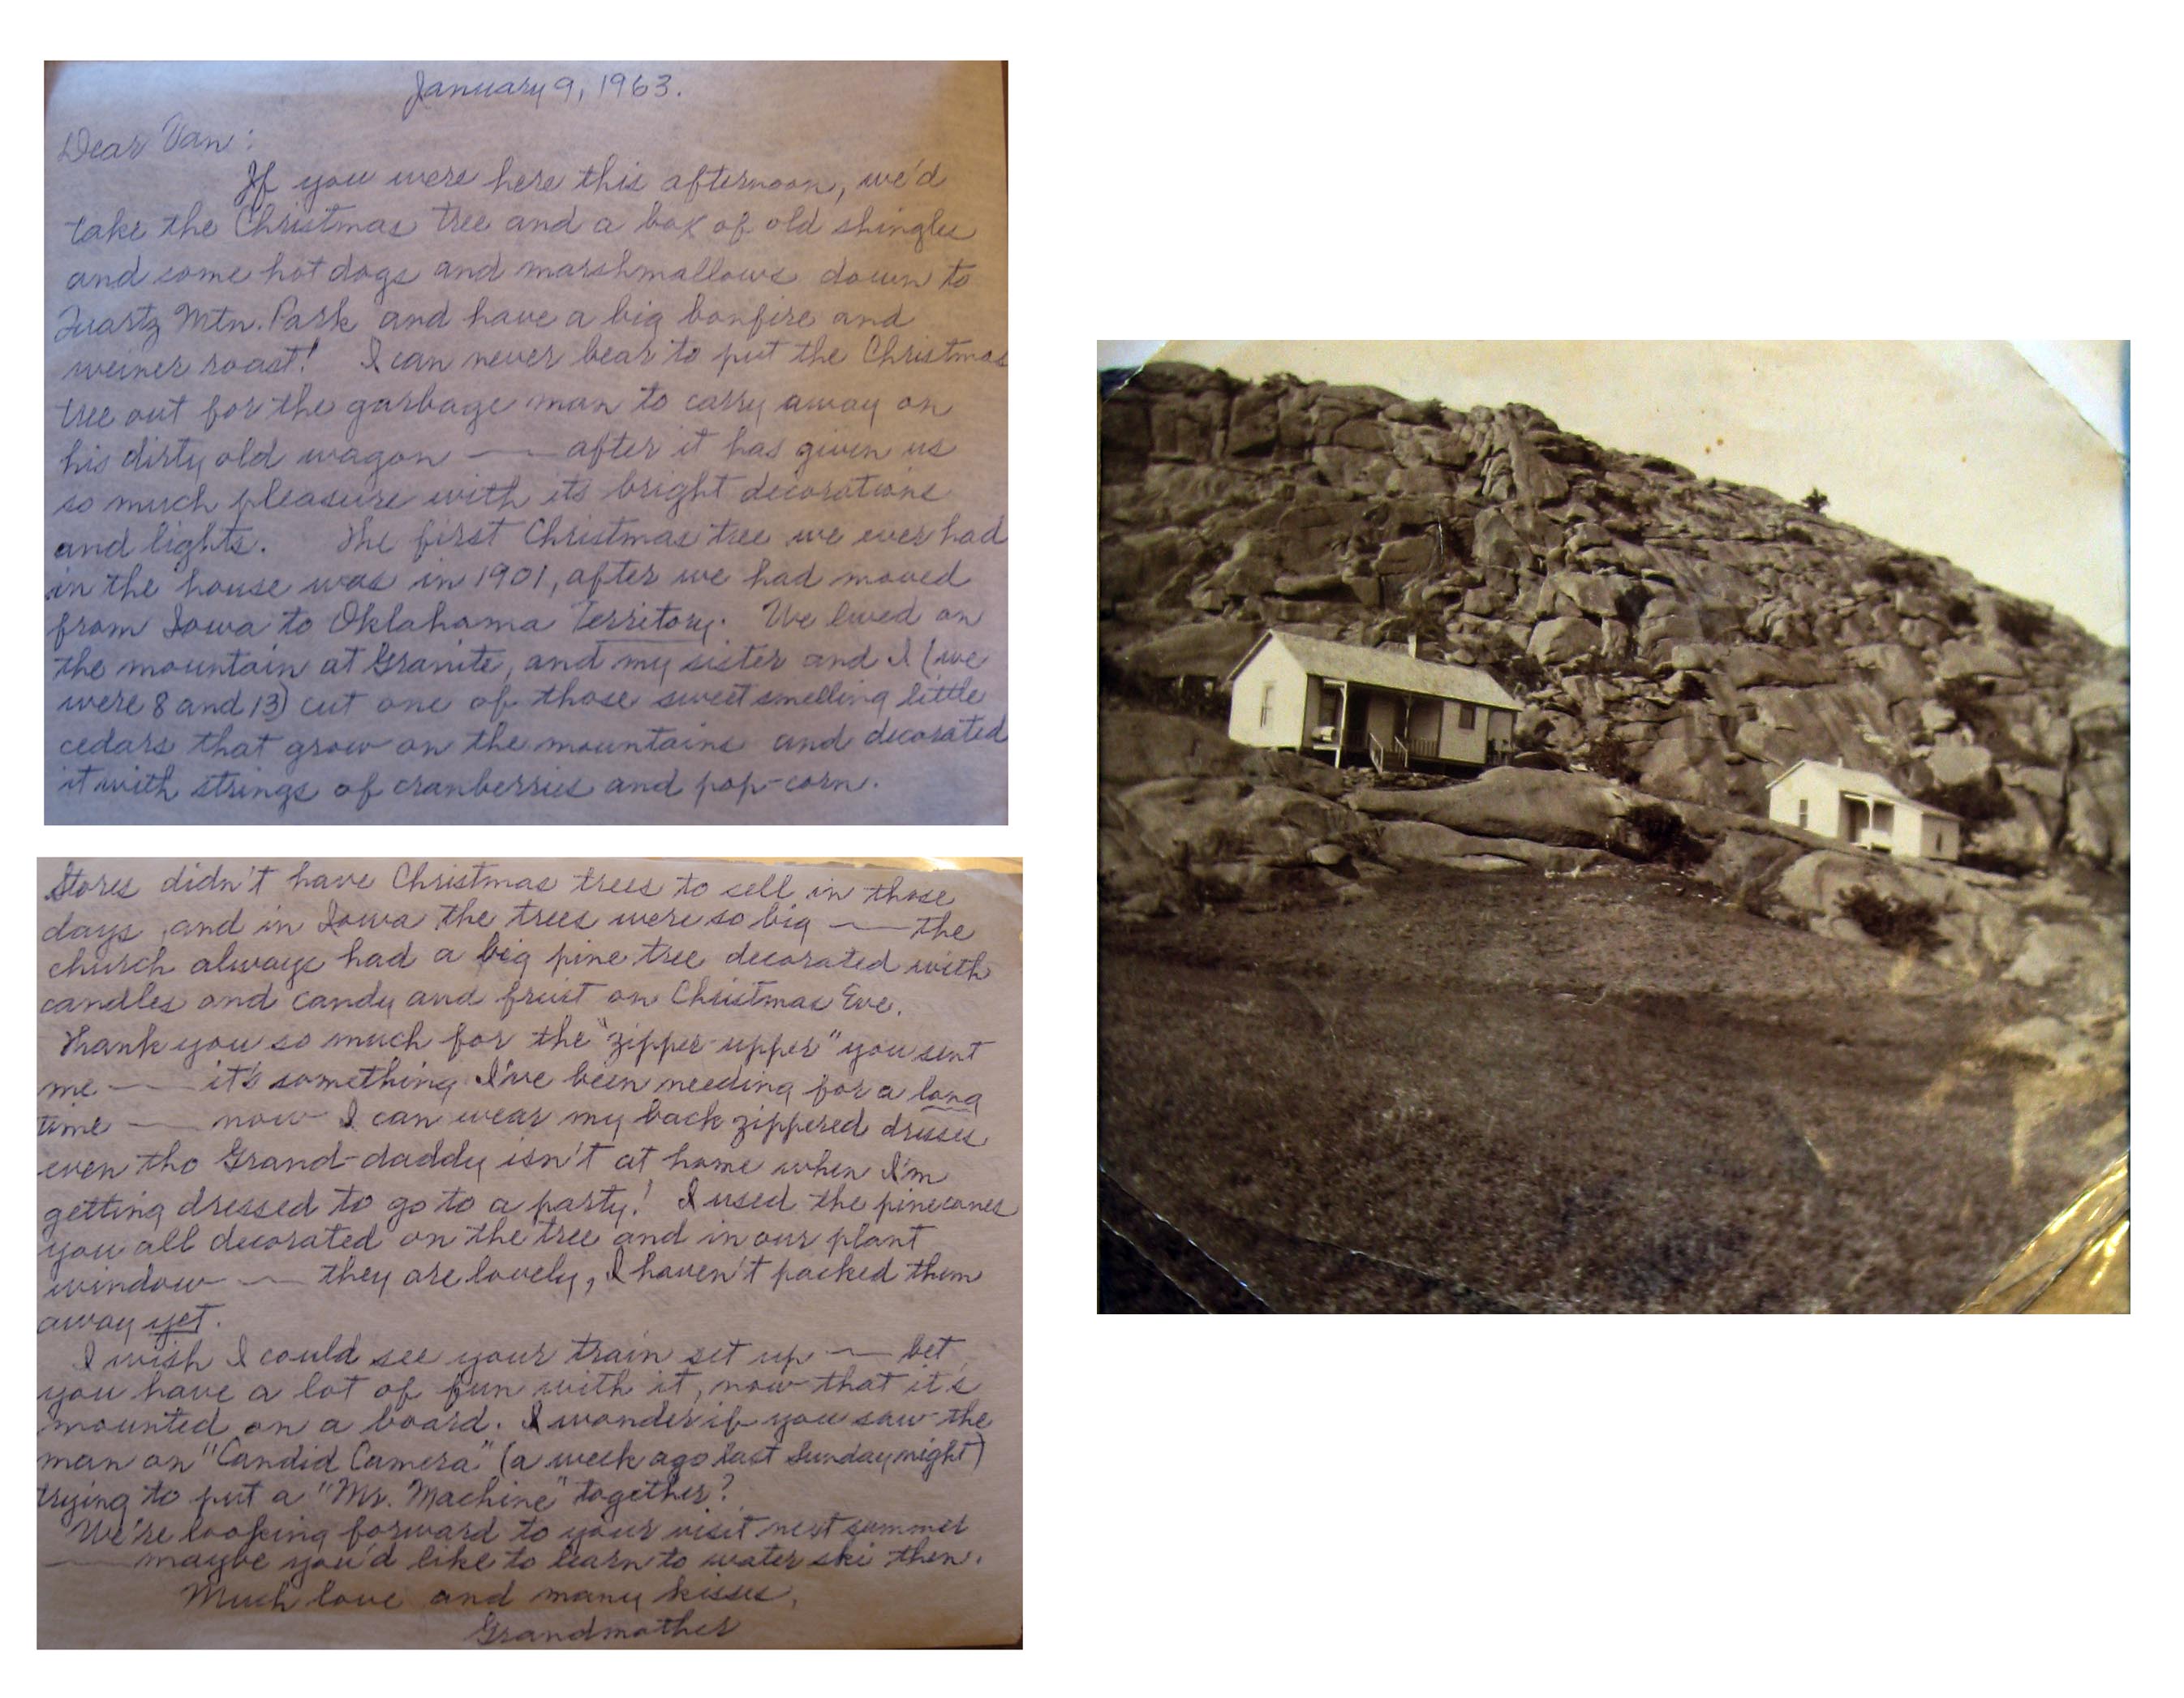 January 9, 1963.
Dear Van:
If you were here this afternoon, we'd
take the Christmas tree and a box of old shingles
and some hot dogs and marshmallows down to
Quartz Mtn. Park and have a big bonfire and
weiner roast! I can never bear to put the Christmas
tree out for the garbage man to carry away on
his dirty old wagon — after it has given us
so much pleasure with its bright decorations
and lights. The first Christmas tree we ever had
in the house was in 1901, after we had moved
from Iowa to Oklahoma Territory. We lived on
the mountain at Granite, and my sister and I (we
were 8 and 13) cut one of those sweet smelling little
cedars that grow on the mountains and decorated
it with strings of cranberries and pop-corn.
Stores didn't have Christmas trees to sell in those
days, and in Iowa the trees were so big — the
church always had a big pine tree decorated with
candles and candy and fruit on Christmas Eve.
Thank you so much for the "zipper-upper" you sent
me — it's something I've been needing for a long
time — now I can wear my back zippered dresses
even tho Grand-daddy isn't at home when I'm
getting dressed to go to a party! I used the pinecones
you all decorated on the tree and in our plant
window — they are lovely, I haven't packed them
away yet.
I wish I could see your train set up — bet
you have a lot of fun with it, now that it's
mounted on a board. I wonder if you saw the
man on "Candid Camera" (a week ago last Sunday night)
trying to put a "Mr. Machine" together?
We're looking forward to your visit next summer
— maybe you'd like to learn to water ski then.
Much love and many kisses,
Grandmother